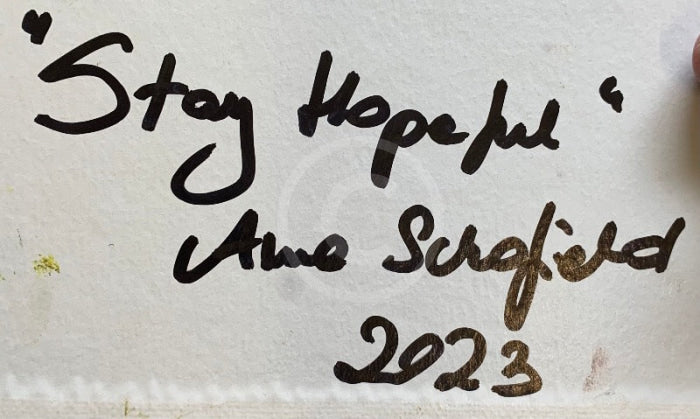 "Stay Hopeful"
Anne Schofield
2023